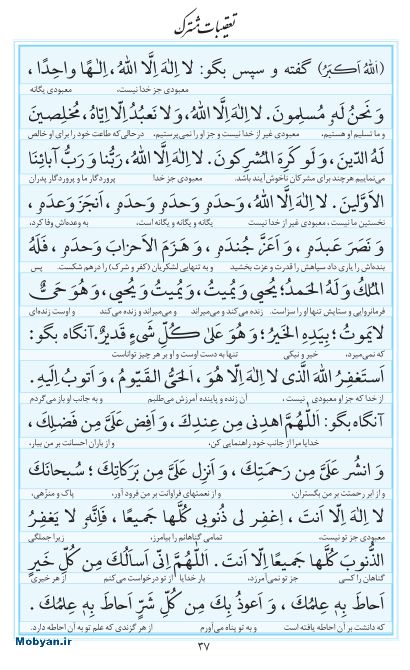 تعقیبات مشترک
(اَللهُ اَکبَرُ) گفته و سپس بگو: لا اِلٰهَ اِلَّا اللهُ، اِلـٰهًا واحِدًا،
معبودی جز خدا نیست، معبودی یگانه
وَ نَحنُ لَهٗ مُسلِمونَ. لا اِلٰهَ اِلَّا اللهُ، وَ لا نَعبُدُ اِلّا اِیّاهُ، مُخلِصینَ
و ما تسلیم او هستیم، معبودی غیر از خدا نیست و جز او را نمی‌پرستیم، درحالی‌که طاعت خود را برای او خالص
لَهُ الدّینَ، وَ لَو کَرِهَ المُشرِکونَ. لا اِلٰهَ اِلَّا اللهُ، رَبُّنا وَ رَبُّ آبائِنَا
می‌نماییم هرچند برای مشرکان ناخوش آیند باشد. معبودی جز خدا پروردگار ما و پروردگار پدران
الاَوَّلینَ. لا اِلٰهَ اِلَّا اللهُ، وَحدَهٗ وَحدَهٗ وَحدَهٗ، اَنجَزَ وَعدَهٗ،
نخستین ما نیست، معبودی غیر از خدا نیست یگانه و یگانه و یگانه است، به وعده‌اش وفا کرد،
وَ نَصَرَ عَبدَهٗ، وَ اَعَزَّ جُندَهٗ، وَ هَزَمَ الاَحزابَ وَحدَهٗ، فَلَهُ
بنده‌اش را یاری داد سپاهش را قدرت و عزت بخشید و به تنهایی لشکریان (کفر و شرک) را درهم شکست. پس
المُلكُ وَ لَهُ الحَمدُ؛ یُحیی وَ یُمیتُ، وَ یُمیتُ وَ یُحیی، وَ هُوَ حَیٌّ
فرمانروایی و ستایش تنها او را سزاست. زنده می‌کند و می‌میراند و می‌میراند و زنده می‌کند و اوست زنده‌ای
لا یَموتُ؛ بِیَدِهِ الخَیرُ؛ وَ هُوَ عَلیٰ کُلِّ شَیءٍ قَدیرٌ. آنگاه بگو:
که نمی‌میرد، خیر و نیکی تنها به دست اوست و او بر هر چیز تواناست
اَستَغفِرُ اللهَ الَّذی لا اِلٰهَ اِلّا هُوَ، الحَیُّ القَیّومُ، وَ اَتوبُ اِلَیهِ.
از خدا که جز او معبودی نیست، آن زنده و پاینده آمرزش می‌طلبم و به جانب او باز می‌گردم
آنگاه بگو: اَللّٰهُمَّ اهدِنی مِن عِندِكَ، وَ اَفِض عَلَیَّ مِن فَضلِكَ،
خدایا مرا از جانب خود راهنمایی کن، و از باران احسانت بر من ببار،
وَ انشُر عَلَیَّ مِن رَحمَتِكَ، وَ اَنزِل عَلَیَّ مِن بَرَکاتِكَ؛ سُبحانَكَ
و از ابر رحمتت بر من بگستران، و از نعمتهای فراوانت بر من فرود آور، پاک و منزّهی،
لا اِلٰهَ اِلّا اَنتَ، اِغفِر لی ذُنوبی کُلَّها جَمیعًا، فَاِنَّهٗ لا یَغفِرُ
معبودی جز تو نیست، تمامی گناهانم را بیامرز، زیرا جملگی
الذُّنوبَ کُلَّها جَمیعًا اِلّا اَنتَ. اَللّٰهُمَّ اِنّی اَسألُكَ مِن کُلِّ خَیرٍ
گناهان را کسی جز تو نمی‌آمرزد، بار خدایا از تو درخواست می‌کنم از هر خیری
اَحاطَ بِهٖ عِلمُكَ، وَ اَعوذُ بِكَ مِن کُلِّ شَرٍّ اَحاطَ بِهٖ عِلمُكَ.
که دانشت بر آن احاطه یافته است و به تو پناه می‌آورم از هر گزندی که علم تو به آن احاطه دارد.
۳۷
Mobyan.ir